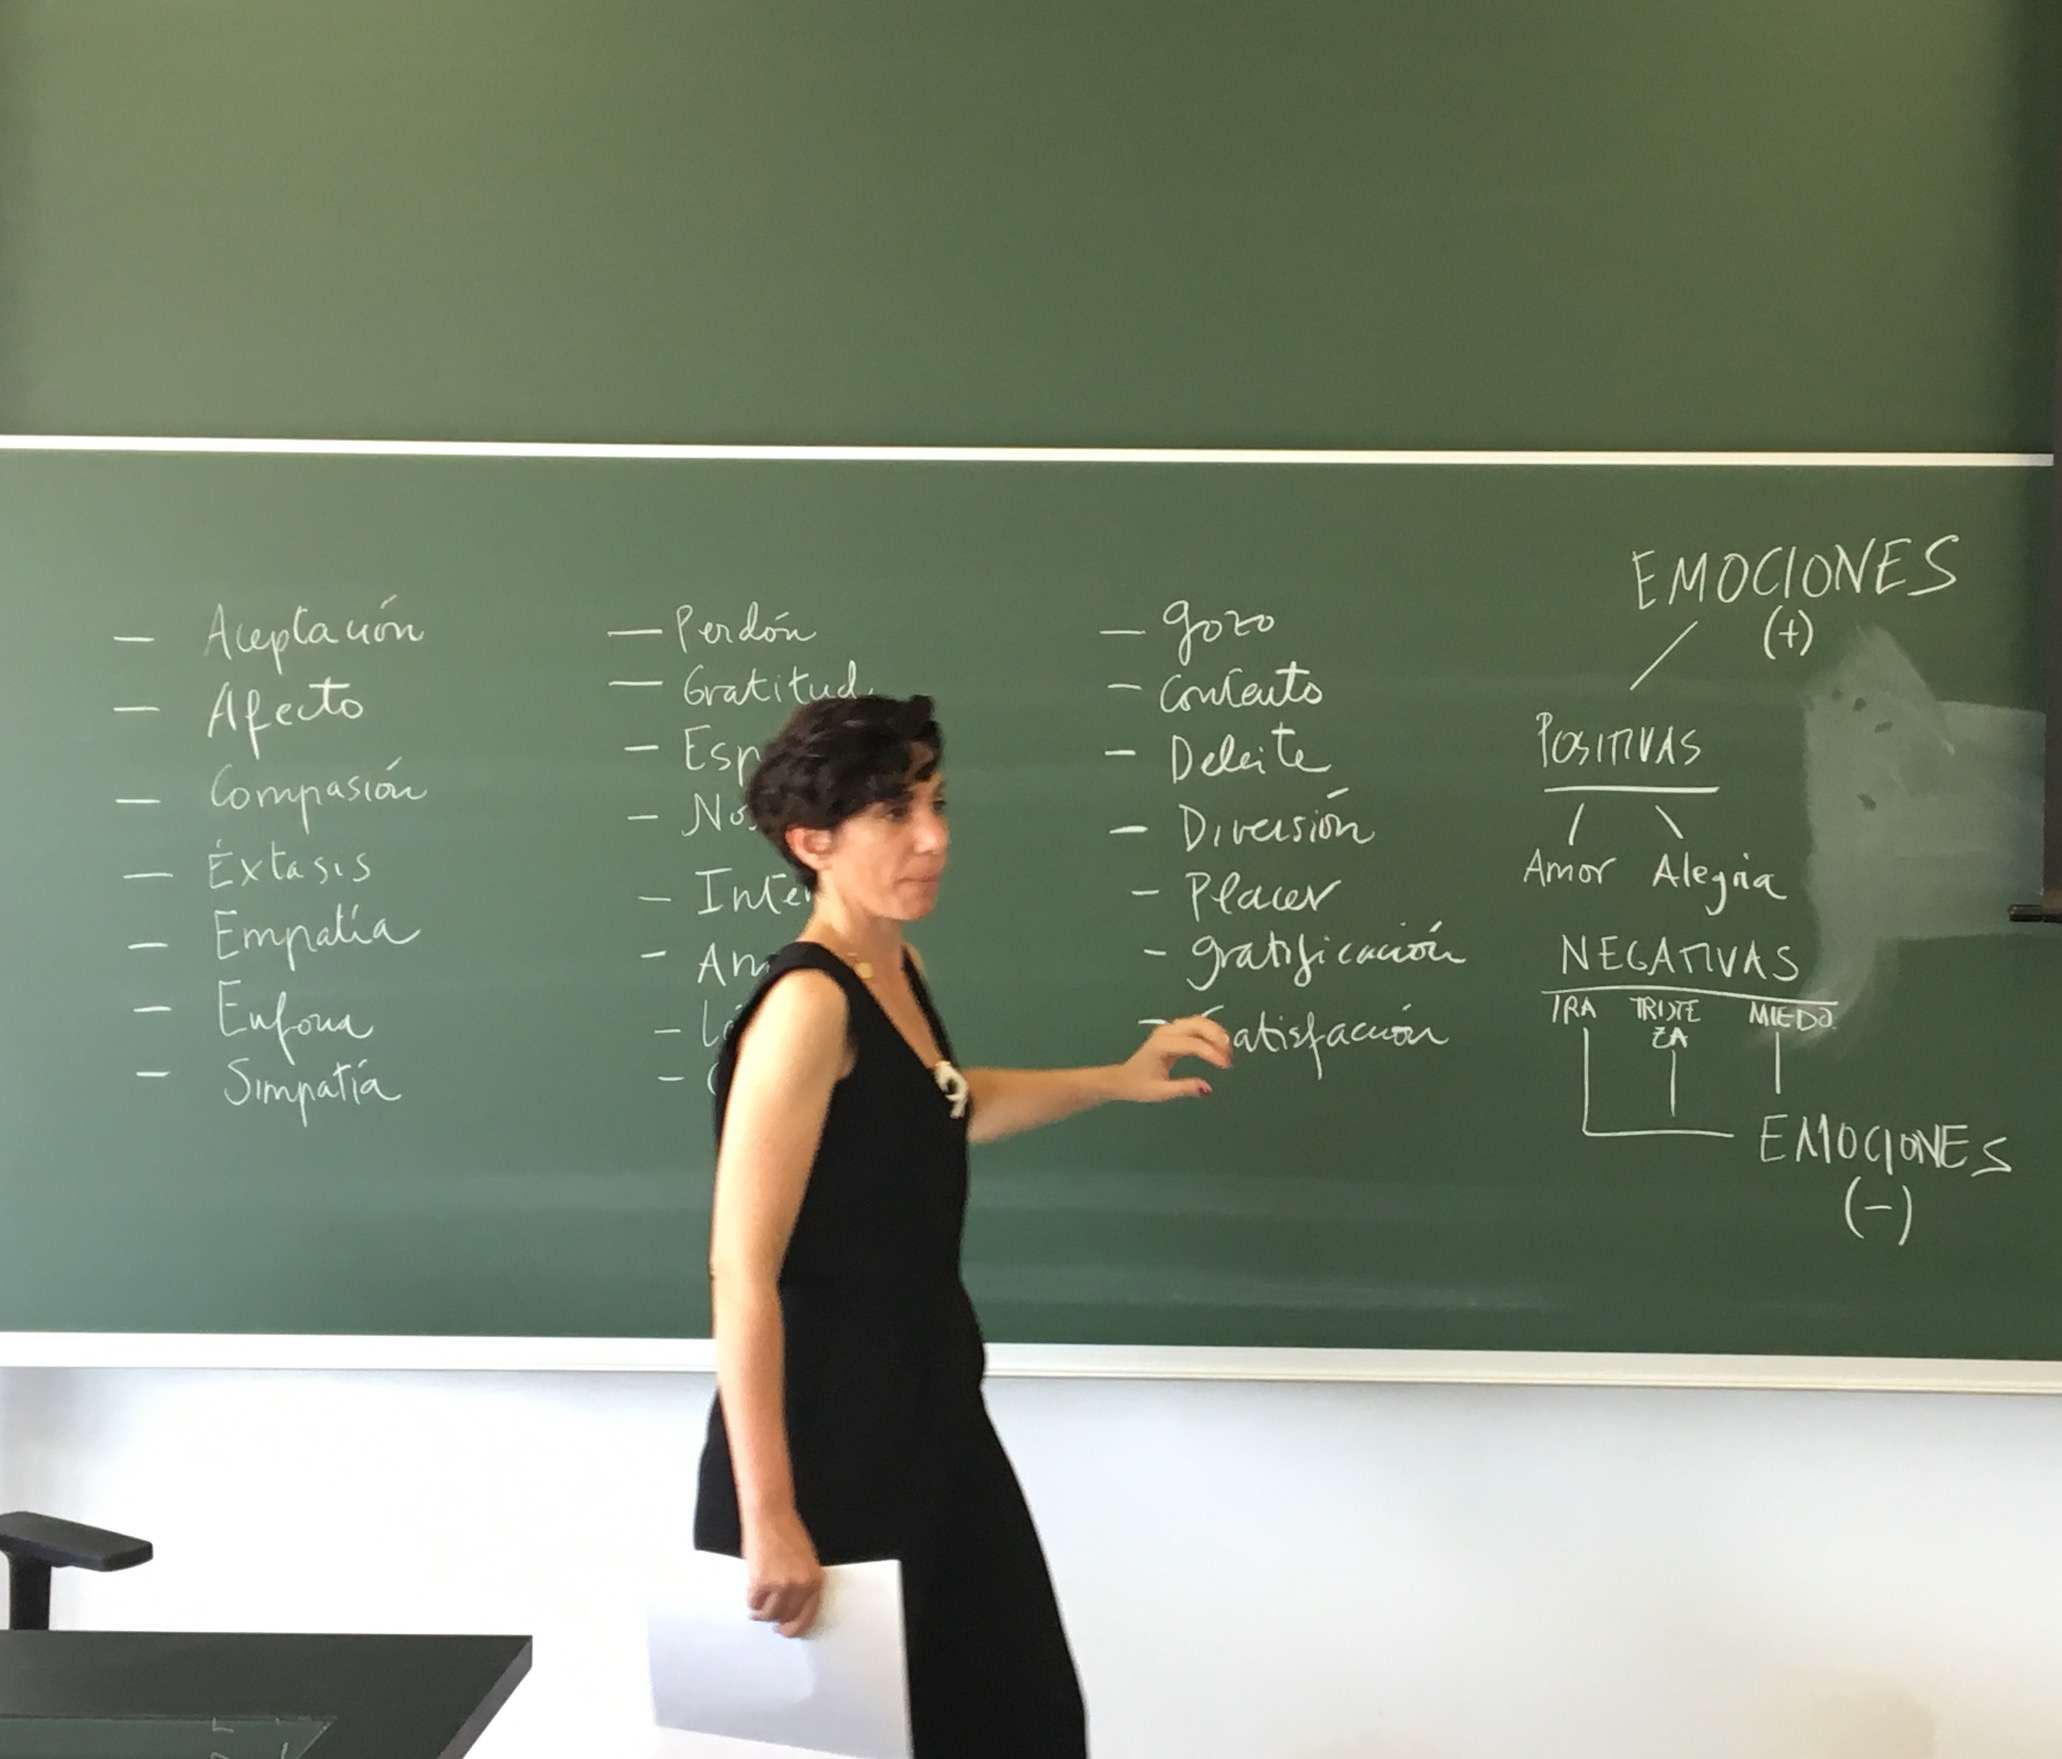 — Aceptación
— Afecto
— Compasión
— Éxtasis
— Empatía
— Euforia
— Simpatía
— Perdón
— Gratitud
— gozo
— Contento
— Deleite
— Diversión
— Placer
— gratificación
— Satisfacción
EMOCIONES
(+)
POSITIVAS
Amor Alegria
NEGATIVAS
IRA TRISTE MIEDO
ZA
EMOCIONES
(-)